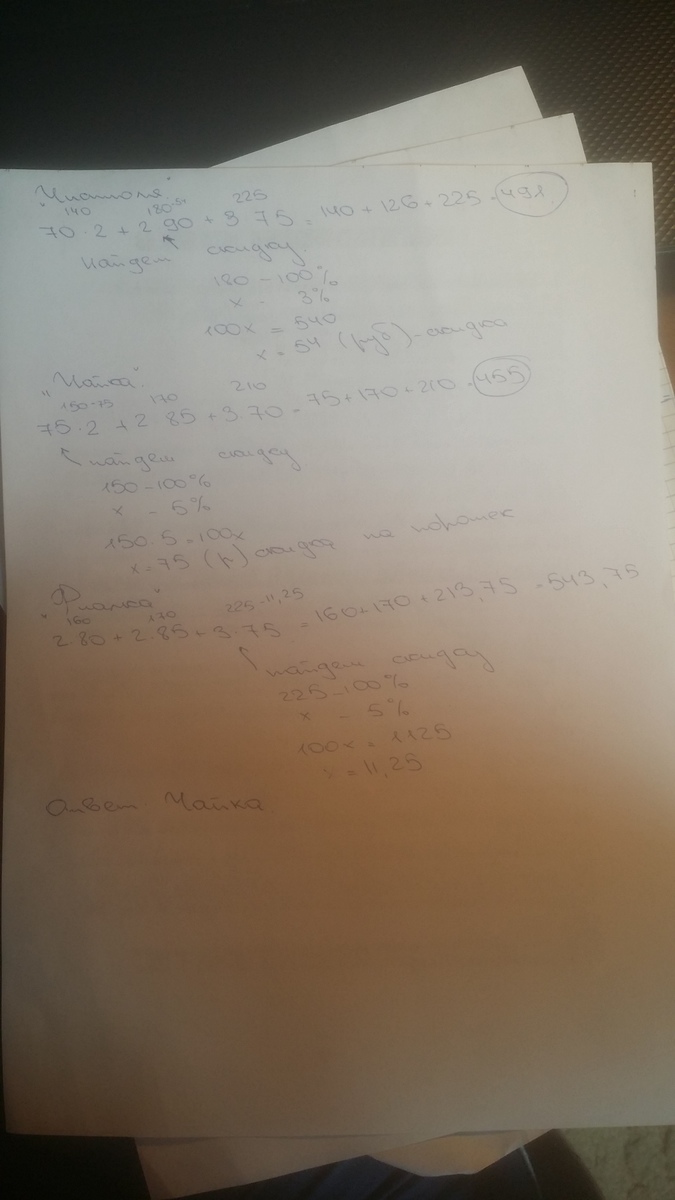 "Чистюля"
140 180-54 225
70·2 + 2 90 + 3 75 = 140 + 126 + 225 = 491
найдем скидку
180 - 100%
x - 3%
100x = 540
x = 54 (руб) - скидка
"Чайка"
150-75 170 210
75·2 + 2 85 + 3·70 = 75 + 170 + 210 = 455
найдем скидку
150 - 100%
x - 5%
150·5 = 100x
x = 75 (р) скидка на порошек
"Фиалка"
160 170 225-11,25
2·80 + 2·85 + 3·75 = 160 + 170 + 213,75 = 543,75
найдем скидку
225 - 100%
x - 5%
100x = 1125
= 11,25
Ответ Чайка